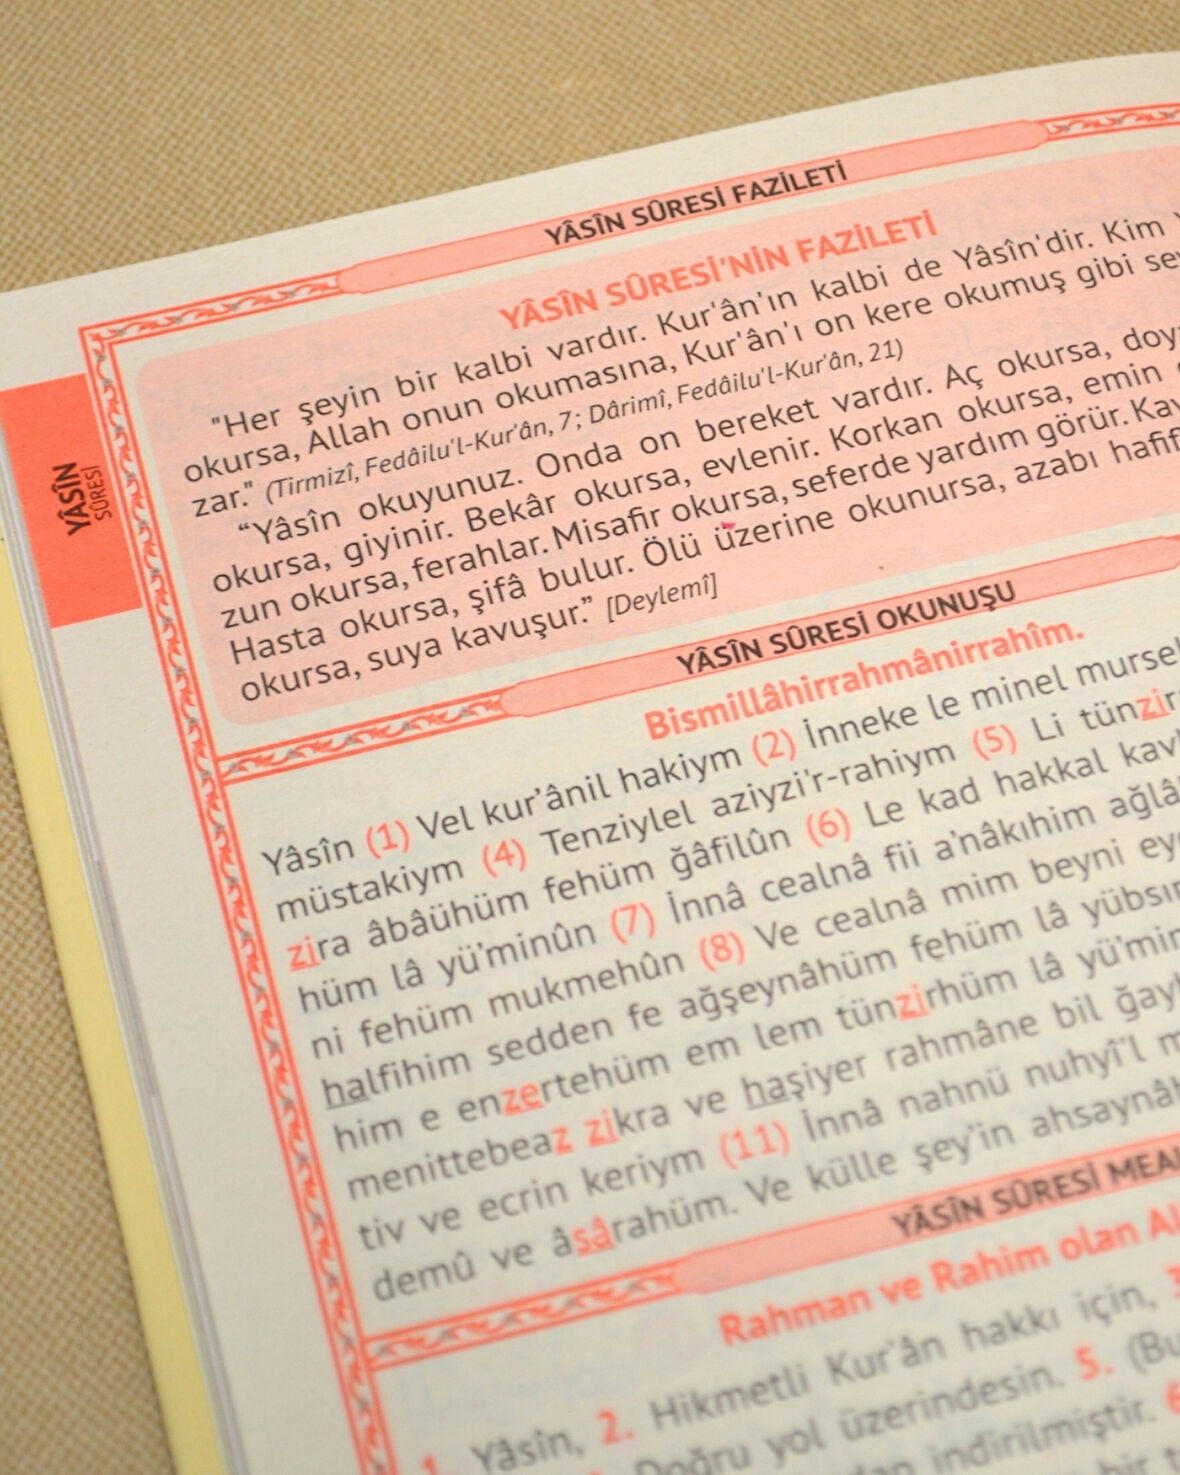 YÂSÎN SÛRESİ FAZİLETİ
YÂSÎN SÛRESİ'NİN FAZİLETİ
"Her şeyin bir kalbi vardır. Kur'ân'ın kalbi de Yâsîn'dir. Kim
okursa, Allah onun okumasına, Kur'ân'ı on kere okumuş gibi
zar." (Tirmizî, Fedâilu'l-Kur'ân, 7; Dârimî, Fedâilu'l-Kur'ân, 21)
“Yâsîn okuyunuz. Onda on bereket vardır. Aç okursa,
okursa, giyinir. Bekâr okursa, evlenir. Korkan okursa, emin
zun okursa, ferahlar. Misafir okursa, seferde yardım görür.
Hasta okursa, şifâ bulur. Ölü üzerine okunursa, azabı
okursa, suya kavuşur.” [Deylemî]
YÂSÎN
SÛRESİ
YÂSÎN SÛRESİ OKUNUŞU
Bismillâhirrahmânirrahîm.
Yâsîn (1) Vel kur’ânil hakiym (2) İnneke le minel
müstakiym (4) Tenziylel aziyzi'r-rahiym (5) Li
zira âbâühüm fehüm ğâfilûn (6) Le kad hakkal
hüm lâ yü’minûn (7) İnnâ cealnâ fii a’nâkıhim
ni fehüm mukmehûn (8) Ve cealnâ mim beyni
halfihim sedden fe ağşeynâhüm fehüm lâ
him e enzertehüm em lem tünzirhüm lâ
menittebeaz zikra ve haşiyer rahmâne bil
tiv ve ecrin keriym (11) İnnâ nahnü nuhyi'l
demû ve âsârahüm. Ve külle şey’in
YÂSÎN SÛRESİ
Rahman ve Rahim olan
1. Yâsîn, 2. Hikmetli Kur’ân hakkı için,
Doğru yol üzerindesin. 5.
indirilmiştir.
bir